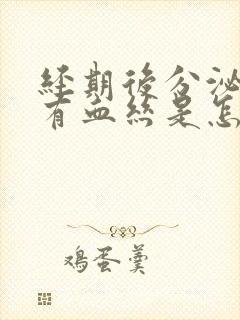 經期後分泌
有血絲是怎
鸡蛋羹